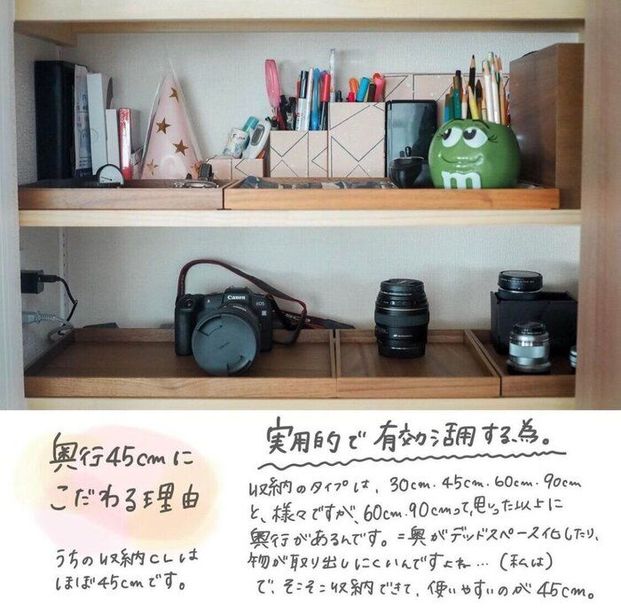 Canon
EOS
R
m
奥行45cmに
こだわる理由
うちの収納CLは
ほぼ45cmです。
実用的で有効活用する為。
収納のタイプは、30cm・45cm・60cm・90cm
と、様々ですが、60cm・90cmって、思った以上に
奥行があるんです。=奥がデッドスペース化したり、
物が取り出しにくいんですよね…(私は)
で、そこそこ収納できて、使いやすいのが45cm。